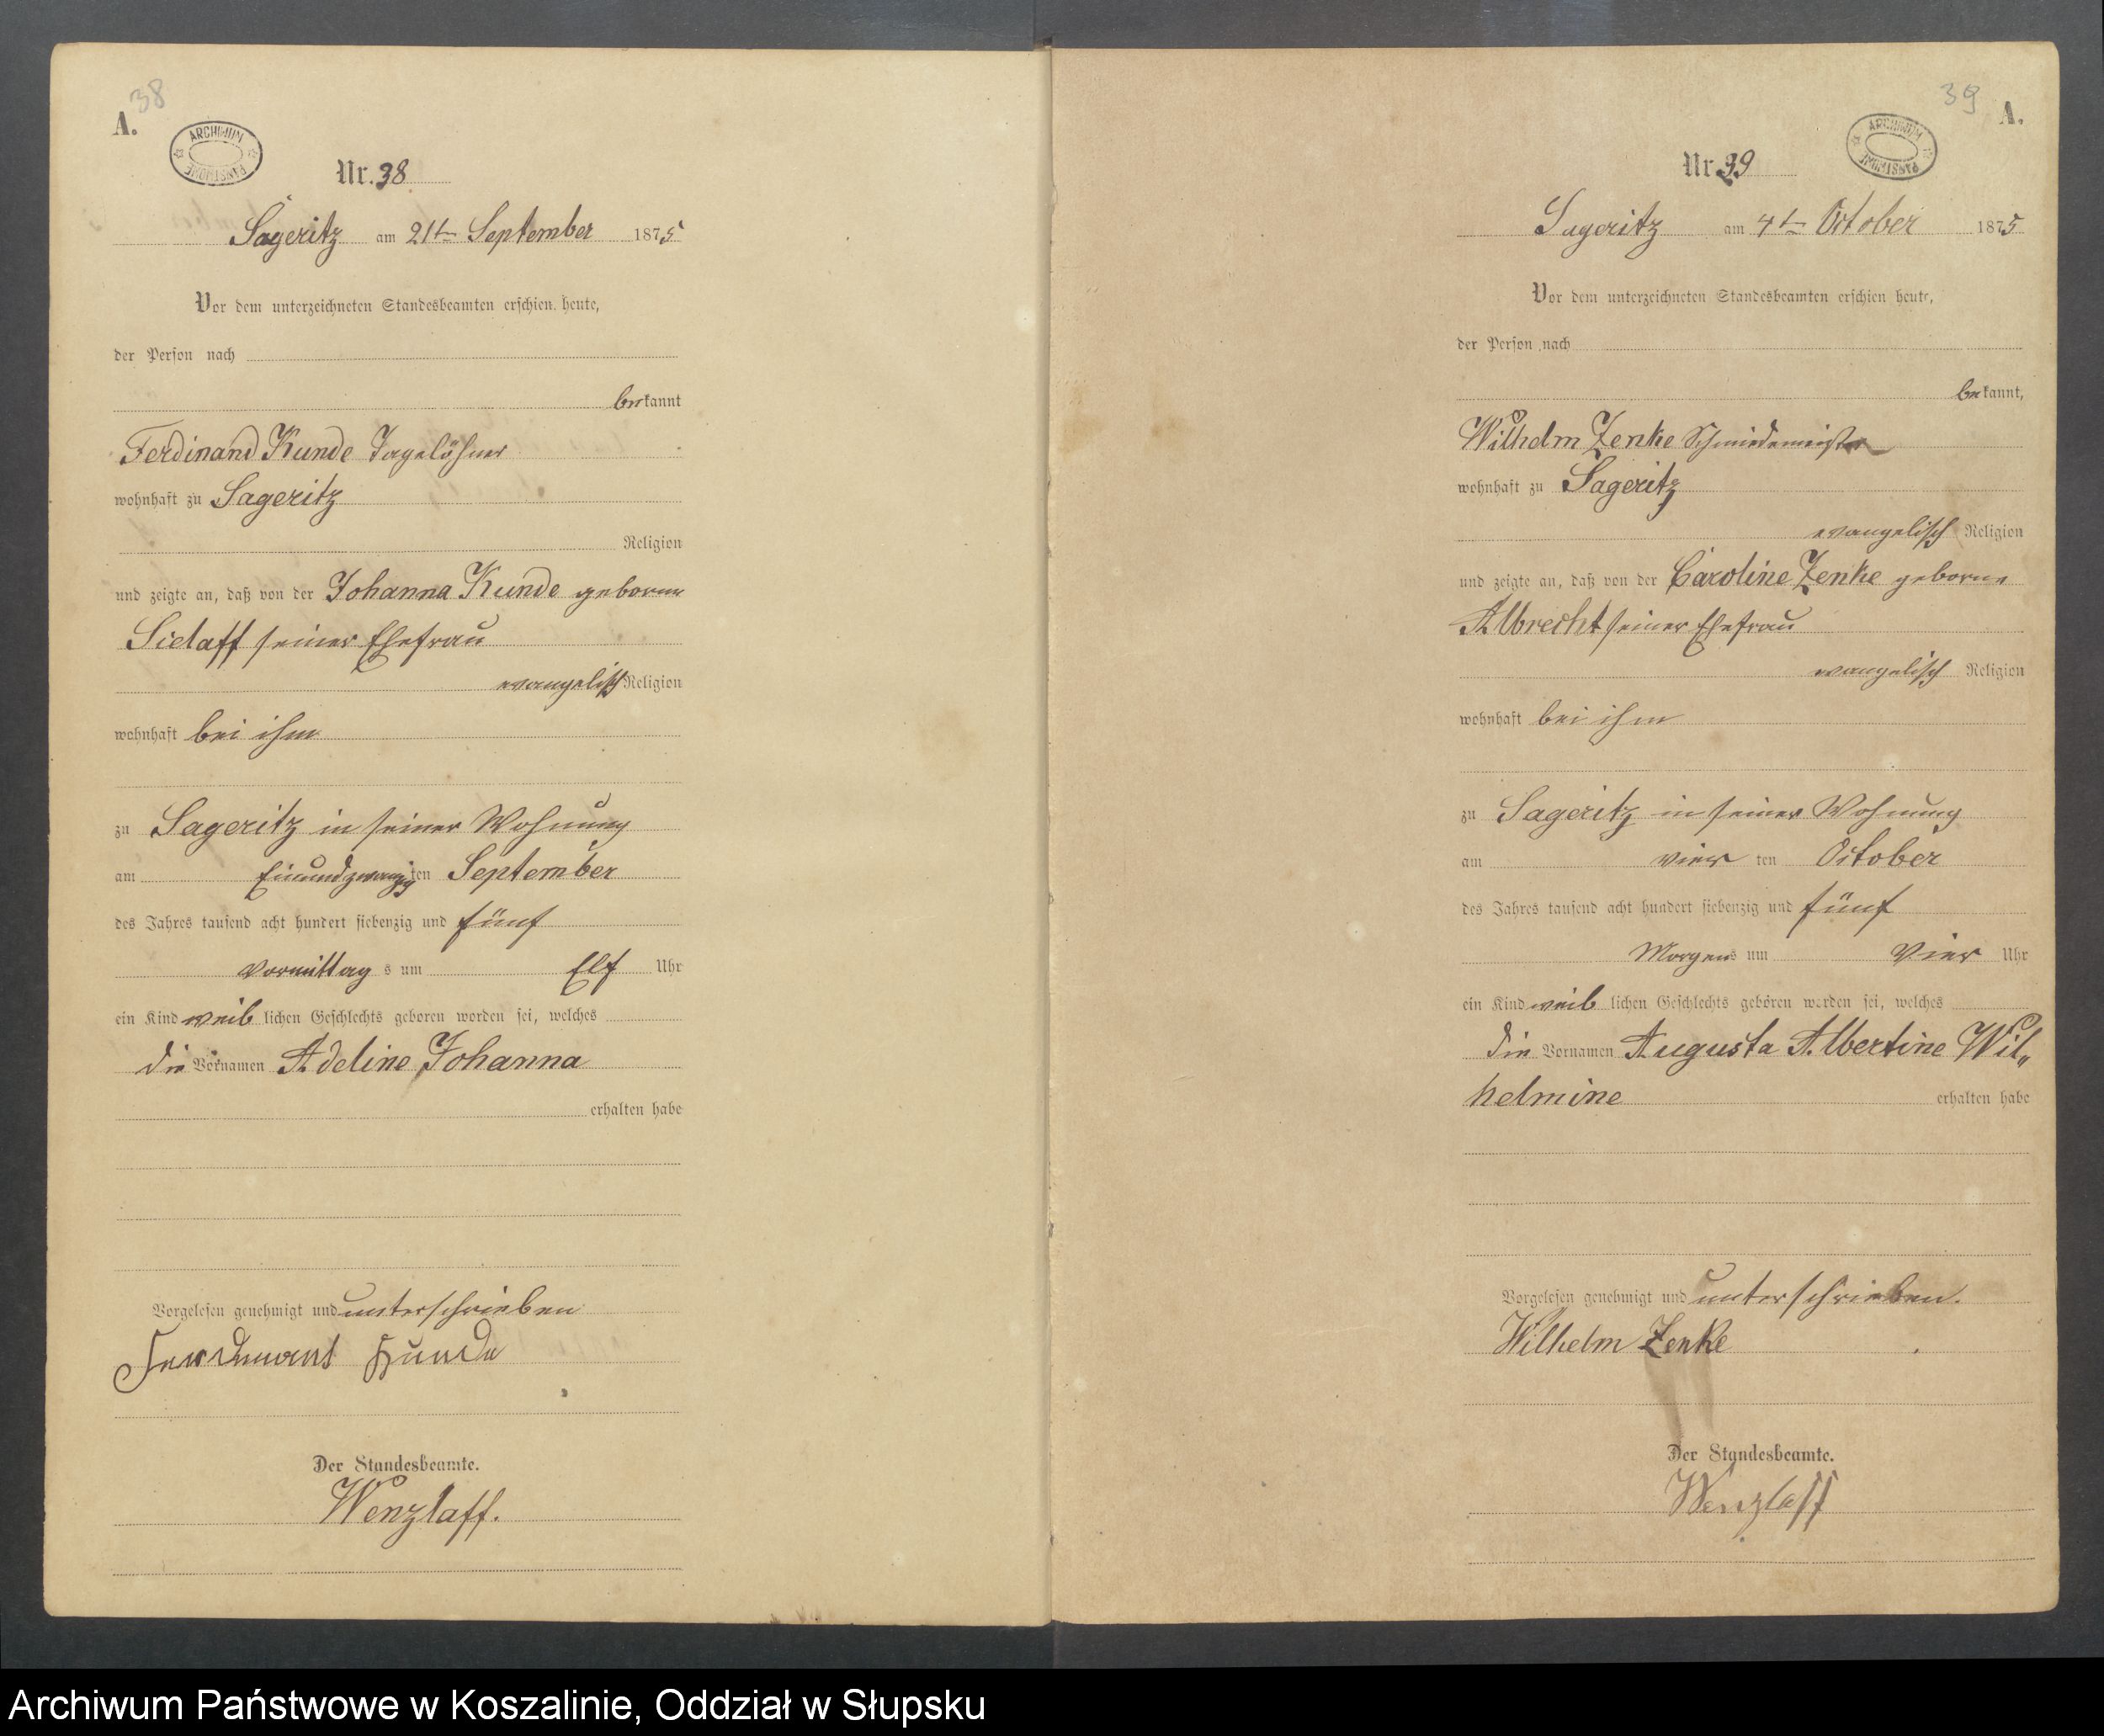 38
A.
ARCHIWUM PAŃSTWOWE
Nr. 38
Sageritz am 21t September 1875
Vor dem unterzeichneten Standesbeamten erschien heute,
der Person nach
bekannt
Ferdinand Kunde Tagelöhner
wohnhaft zu Sageritz
Religion
und zeigte an, daß von der Johanna Kunde geborne
Sielaff seiner Ehefrau
evangelisch Religion
wohnhaft bei ihm
zu Sageritz in seiner Wohnung
am Einundzwanzigten September
des Jahres tausend acht hundert siebenzig und fünf
Vormittag s um Elf Uhr
ein Kind weib lichen Geschlechts geboren worden sei, welches
die Vornamen Adeline Johanna
erhalten habe
Vorgelesen genehmigt und unterschrieben
Ferdinant Kunde
Der Standesbeamte.
Wenzlaff.
39
A.
ARCHIWUM PAŃSTWOWE
Nr. 39
Sageritz am 4t October 1875
Vor dem unterzeichneten Standesbeamten erschien heute,
der Person nach
bekannt,
Wilhelm Zenke Schmiedemeister
wohnhaft zu Sageritz
evangelisch Religion
und zeigte an, daß von der Caroline Zenke geborne
Albrecht seiner Ehefrau
evangelisch Religion
wohnhaft bei ihm
zu Sageritz in seiner Wohnung
am vier ten October
des Jahres tausend acht hundert siebenzig und fünf
Morgens um Vier Uhr
ein Kind weib lichen Geschlechts geboren worden sei, welches
die Vornamen Augusta Albertine Wil„
helmine erhalten habe
Vorgelesen genehmigt und unterschrieben.
Wilhelm Zenke
Der Standesbeamte.
Wenzlaff
Archiwum Państwowe w Koszalinie, Oddział w Słupsku